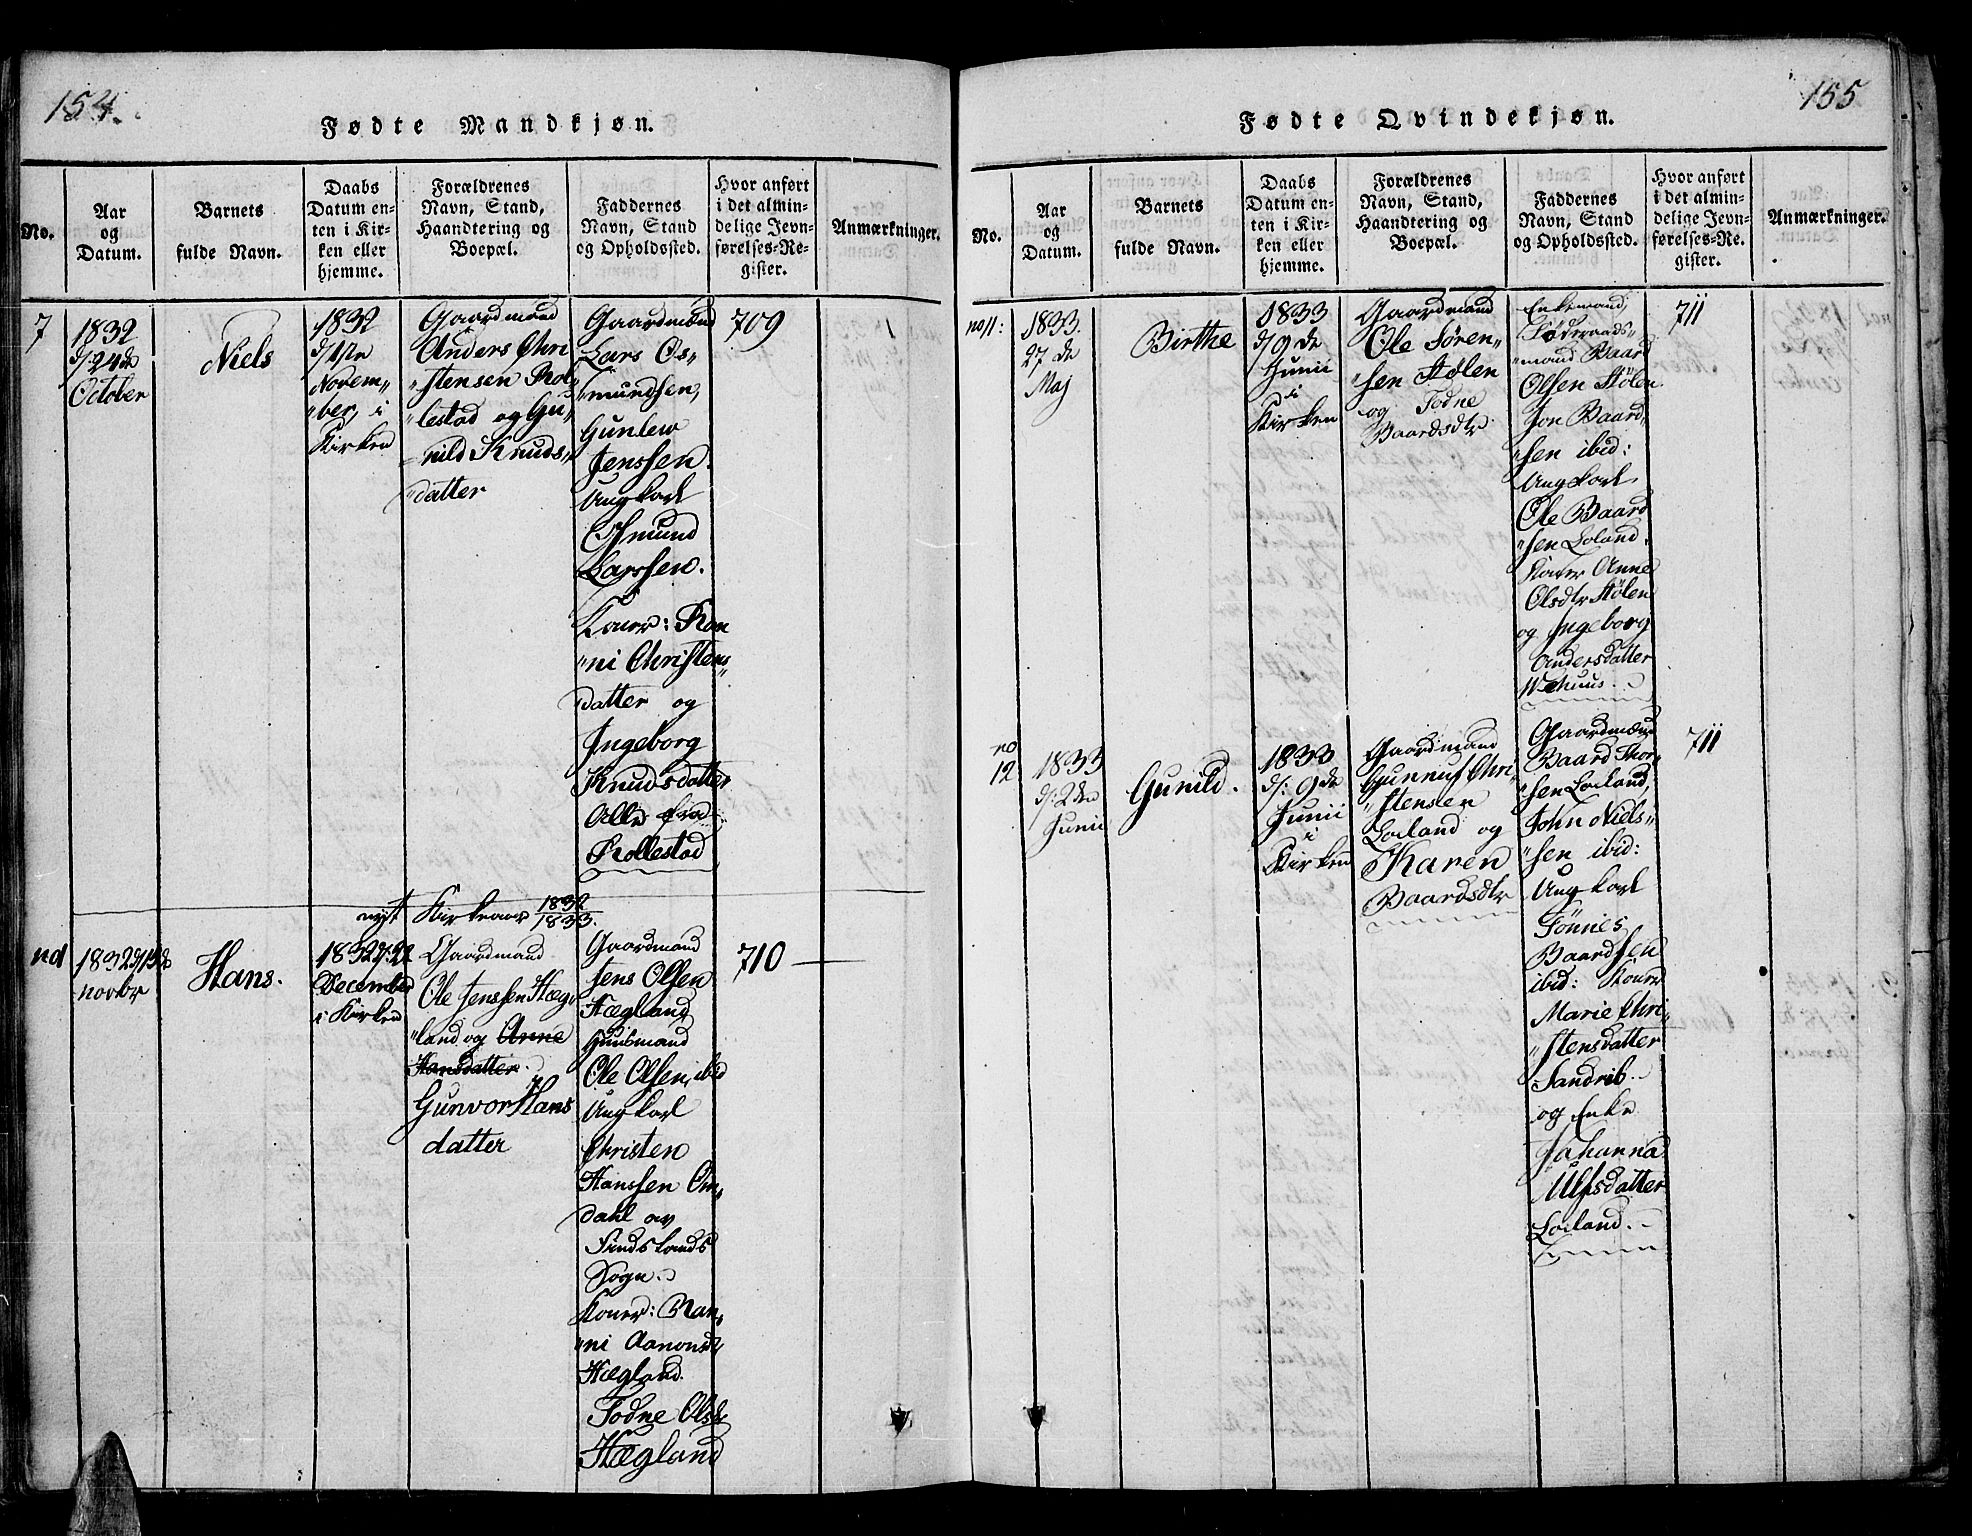 154.
Fødte Mandkjøn.
No.
Aar
og
Datum.
Barnets
fulde Navn.
Daabs
Datum en-
ten i Kir-
ken eller
hjemme.
Forældrenes
Navn, Stand,
Haandtering og
Boepæl.
Faddernes
Navn, Stand
og Opholdssted.
Hvor anført
i det almin-
delige Jevn-
førelses-Re-
gister.
Anmærkninger.
7
1832
d: 24de
October
Niels
1832
d: 1ste
Novem„
„ber, i
Kirken
Gaardmand
Anders Chri
„stensen Rol„
„lestad og Gu„
„nild Knuds„
„datter
Gaardmænd
Lars Os„
„mundsen,
Gunlew
Jenssen.
Ungkarl
Osmund
Larssen.
Koner: Ron
„ni Christens„
datter og
Ingeborg
Knudsdatter
Alle fra
Rollestad
709
nyt Kirkeaar 1832/1833.
nd
1832 d: 15de
novbr
Hans.
1832 d: 22
December
i Kirken
Gaardmand
Ole Jenssen Hæg„
„land og Anne
Hansdatter.
Gunvor Hans
datter
Gaardmand
Jens Olsen
Hægland
Huusmand
Ole Olsen, ibid
Ungkarl
Christen
Hanssen Om„
dahl av
Findslands
Sogn.
Koner: Ran„
„ni Aanonsd
Hægland.
Todne Olsd
Hægland
710
155
Fødte Qvindekjøn.
No.
Aar
og
Datum.
Barnets
fulde Navn.
Daabs
Datum en-
ten i Kir-
ken eller
hjemme.
Forældrenes
Navn, Stand,
Haandtering og
Boepæl.
Faddernes
Navn, Stand
og Opholdssted.
Hvor anført
i det almin-
delige Jevn-
førelses-Re-
gister.
Anmærkninger.
no 11:
1833.
27 de
Maj
Birthe
1833
d/9 de
Junii
i
Kirken
Gaardmand
Ole Søren„
„sen Stølen
og Todne
Baardsdtr
Enkemand,
Føderaads„
„mand Baard
Olsen Stølen
Jon Baard„
„sen ibid:
Ungkarl
Ole Baard
„sen Loland.
Koner Anne
Olsdtr Stølen
og Ingeborg
Andersdatter
Wehuus.
711
no
12
1833
d: 2den
Junii
Gunild.
1833
d: 9de
Junii
i
Kirken
Gaardmand
Gunnuf Chri„
„stensen
Loeland og
Karen
Baardsdtr
Gaardmænd
Baard Thor„
„sen Loeland,
John Niels„
„sen ibid:
Ungkarl
Tönnes
Baardsen
ibid: Koner
Marie Chri„
„stensdatter
Sandrib.
og Enke
Johanna
Ulfsdatter
Loeland.
711